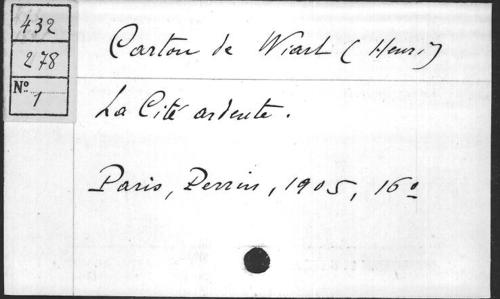 432
278
No
1
Carton de Wiart (Henri)
La Cité ardente.
Paris, Perrin, 1905, 16o